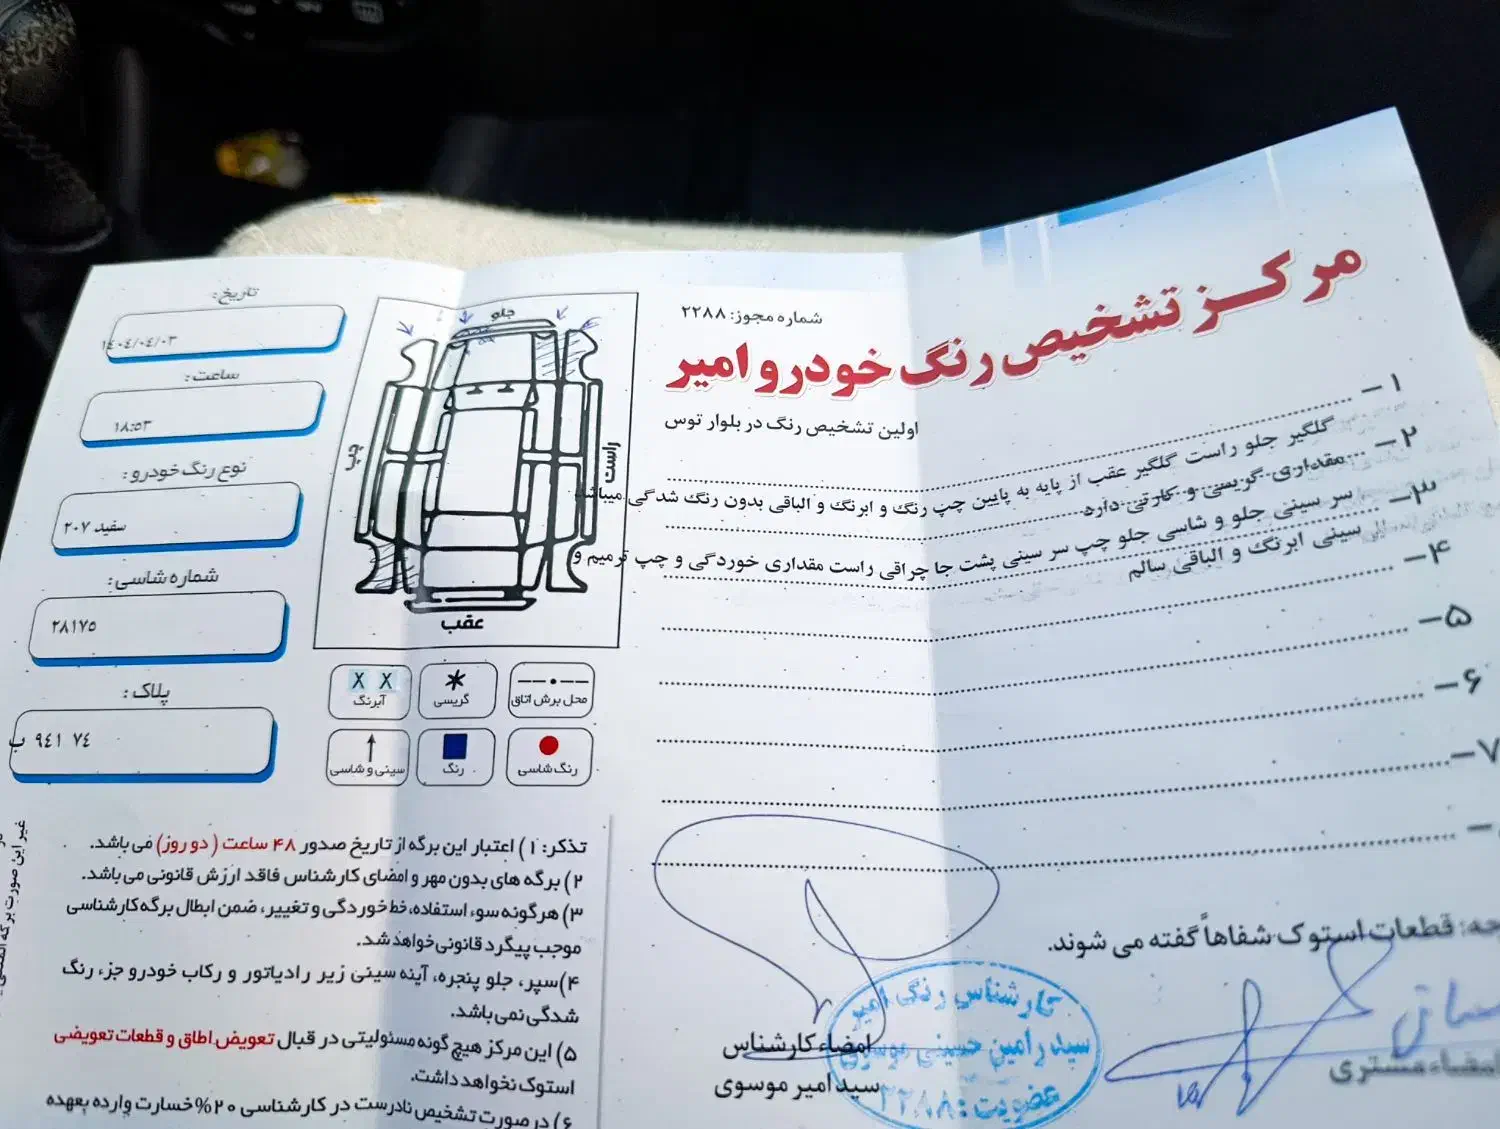 مرکز تشخیص رنگ خودرو امیر
شماره مجوز: ۲۲۸۸
اولین تشخیص رنگ در بلوار توس
۱-
گلگیر جلو راست گلگیر عقب از پایه به پایین چپ رنگ و ابرنگ و الباقی بدون رنگ شدگی میباشد
۲-
مقداری گریسی و کارتی داره
۳-
سر سینی جلو و شاسی جلو چپ سر سینی پشت جا چراقی راست مقداری خوردگی و چپ ترمیم و
سینی ابرنگ و الباقی سالم
۴-
۵-
۶-
۷-
تاریخ:
۱۴۰۴/۰۴/۰۳
ساعت:
۱۸:۵۳
نوع رنگ خودرو:
سفید ۲۰۷
شماره شاسی:
۲۸۱۷۵
پلاک:
ب ۹۴۱ ۷۴
جلو
چپ
راست
عقب
محل برش اتاق
گریسی
X X
آبرنگ
رنگ شاسی
رنگ
سینی و شاسی
تذکر: ۱) اعتبار این برگه از تاریخ صدور ۴۸ ساعت (دو روز) می باشد.
۲) برگه های بدون مهر و امضای کارشناس فاقد ارزش قانونی می باشد.
۳) هرگونه سوء استفاده، خط خوردگی و تغییر، ضمن ابطال برگه کارشناسی
موجب پیگرد قانونی خواهد شد.
۴) سپر، جلو پنجره، آینه سینی زیر رادیاتور و رکاب خودرو جزء رنگ
شدگی نمی باشد.
۵) این مرکز هیچ گونه مسئولیتی در قبال تعویض اطاق و قطعات تعویضی
استوک نخواهد داشت.
۶) در صورت تشخیص نادرست در کارشناسی ۲۰% خسارت وارده بعهده
غیر این صورت برگه
قطعات استوک شفاهاً گفته می شوند.
امضاء کارشناس
سید امیر موسوی
کارشناس رنگ امیر
سید رامین حسینی موسوی
عضویت: ۲۲۸۸
امضاء مشتری